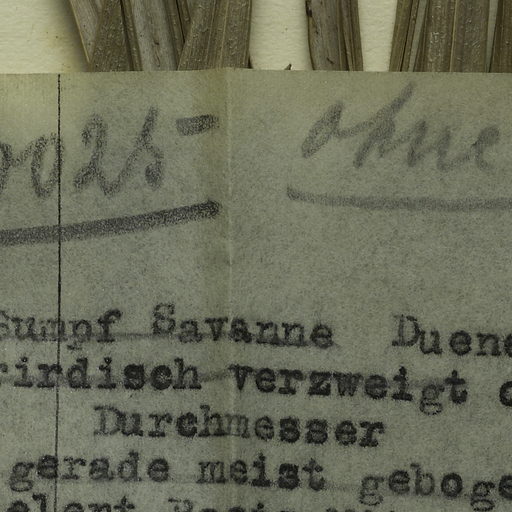 0025 ohne
Sumpf Savanne Duene
irdisch verzweigt
Durchmesser
gerade meist geboge